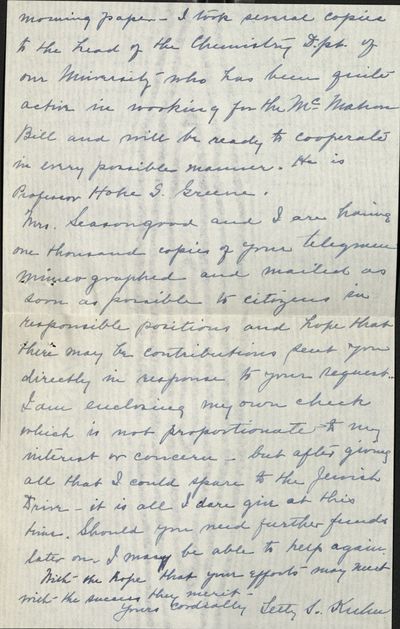 morning paper - I took several copies
to the head of the Chemistry Dpt. of
our University who has been quite
active in working for the Mc Mahon
Bill and will be ready to cooperate
in every possible manner. He is
Professor Hoke S. Greene.
Mrs. Seasongood and I are having
one thousand copies of your telegram
mimeographed and mailed as
soon as possible to citizens in
responsible positions and hope that
there may be contributions sent you
directly in response to your request.
I am enclosing my own check
which is not proportionate to my
interest or concern - but after giving
all that I could spare to the Jewish
Drive - it is all I dare give at this
time. Should you need further funds
later on - I may be able to help again.
With the hope that your efforts may meet
with the success they merit -
Yours cordially Setty S. Kuhn